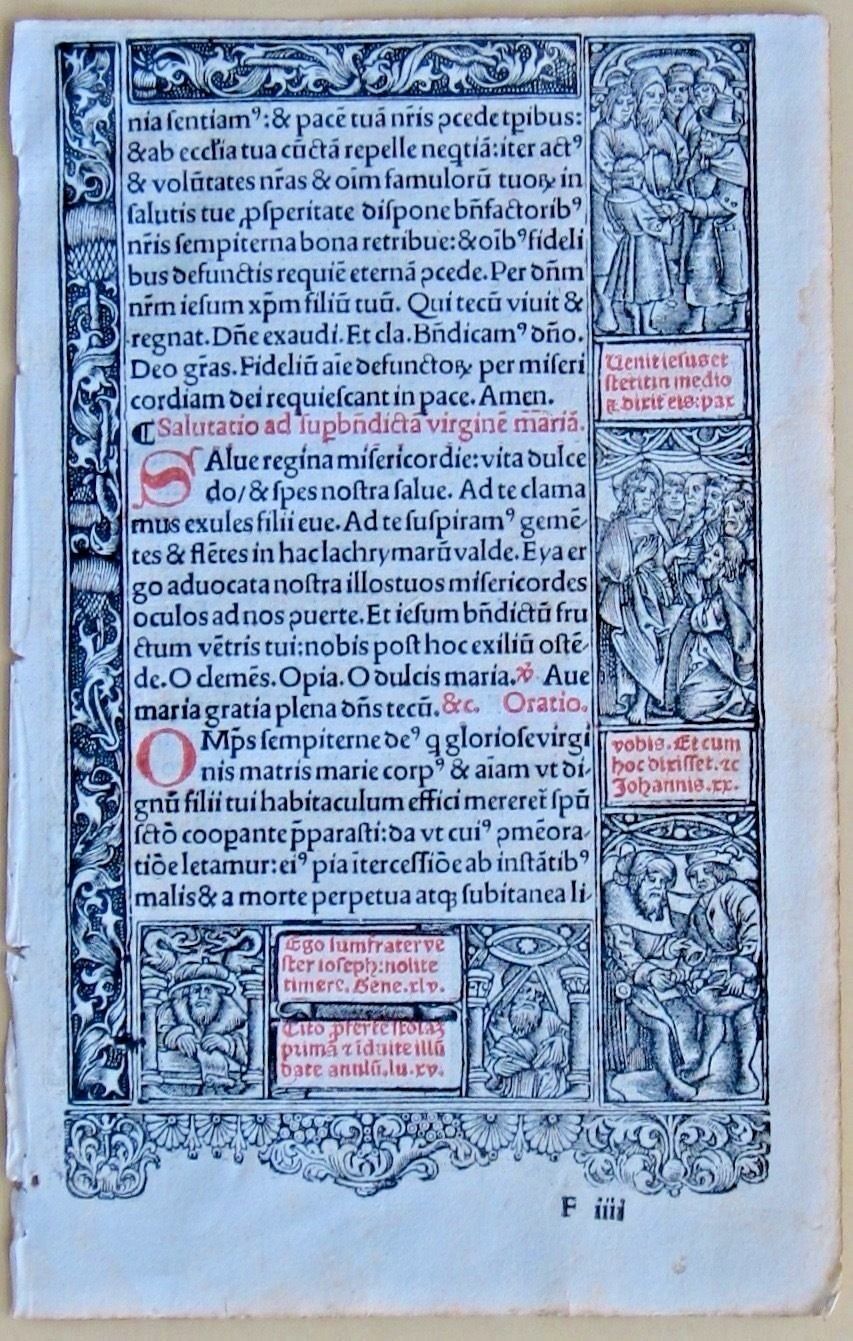 nia sentiamꝰ: & pacē tuā nr̄is ꝯcede tp̄ibus:
& ab eccl'ia tua cūctā repelle neq̄tiā: iter actꝰ
& volūtates nr̄as & oīm famulorū tuoꝝ in
salutis tue ꝓsperitate dispone bn̄factoribꝰ
nr̄is sempiterna bona retribue: & oībꝰ fideli
bus defunctis requiē eternā ꝯcede. Per dn̄m
nr̄m iesum xp̄m filiū tuū. Qui tecū viuit &
regnat. Dn̄e exaudi. Et cla. Bn̄dicamꝰ dn̄o.
Deo gr̄as. Fideliū aīe defunctoꝝ per miseri
cordiam dei requiescant in pace. Amen.
¶ Salutatio ad supbn̄dictā virginē mariā.
SAlue regina misericordie: vita dulce
do/ & spes nostra salue. Ad te clama
mus exules filii eue. Ad te suspiramꝰ gemē-
tes & flētes in hac lachrymarū valde. Eya er
go aduocata nostra illos tuos misericordes
oculos ad nos ꝯuerte. Et iesum bn̄dictū fru
ctum vētris tui: nobis post hoc exiliū ostē-
de. O clemēs. O pia. O dulcis maria. ℣ Aue
maria gratia plena dn̄s tecū. &c. Oratio.
OMp̄s sempiterne deꝰ q̄ gloriose virgi
nis matris marie corpꝰ & aīam vt di-
gnū filii tui habitaculum effici mereret̄ spū
sctō coopante p̄parasti: da vt cuiꝰ ꝯmēora-
tiōe letamur: eiꝰ pia ītercessiōe ab instātibꝰ
malis & a morte perpetua atqꝫ subitanea li-
Uenit iesus et
stetit in medio
⁊ dixit eis: pax
vobis. Et cum
hoc dixisset. ⁊c
Johannis. xx.
Ego sum frater ve
ster ioseph: nolite
timere. Gene. xlv.
Cito ꝓferte stolaꝫ
primā ⁊ īduite illū
date anulū. lu. xv.
F iiii